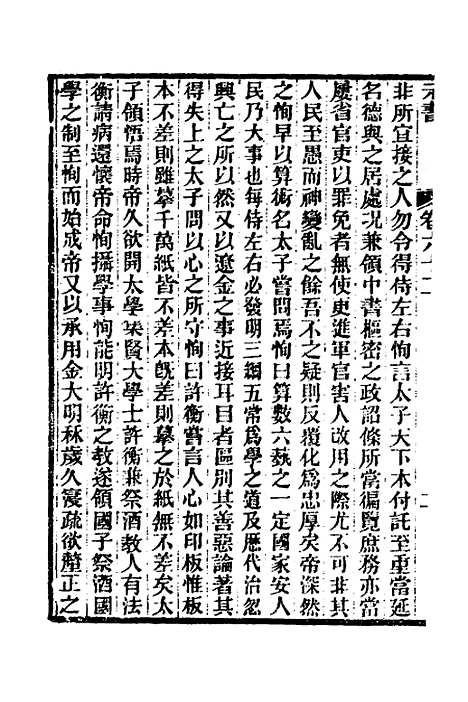 元書 卷六十二
非所宜接之人勿令得侍左右恂言太子天下本付託至重當延
名德與之居處况兼領中書樞密之政詔條所當徧覽庶務亦當
屢省官吏以罪免者無使吏進軍官害人改用之際尤不可非其
人民至愚而神變亂之餘吾不之疑則反覆化爲忠厚矣帝深然
之恂早以算術名太子嘗問焉恂曰算數六藝之一定國家安人
民乃大事也每侍左右必發明三綱五常爲學之道及歷代治忽
興亡之所以然又以遼金之事近接耳目者區别其善惡論著其
得失上之太子問以心之所守恂曰許衡嘗言人心如印板惟板
本不差則雖摹千萬紙皆不差本旣差則摹之於紙無不差矣太
子領悟焉時帝久欲開太學集賢大學士許衡兼祭酒敎人有法
衡請病還懷帝命恂攝學事恂能明許衡之敎遂領國子祭酒國
學之制至恂而始成帝又以承用金大明秝歲久寖疏欲釐正之